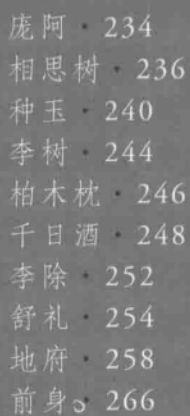 庞阿·234
相思树·236
种玉·240
李树·244
柏木枕·246
千日酒·248
李除·252
舒礼·254
地府·258
前身·266